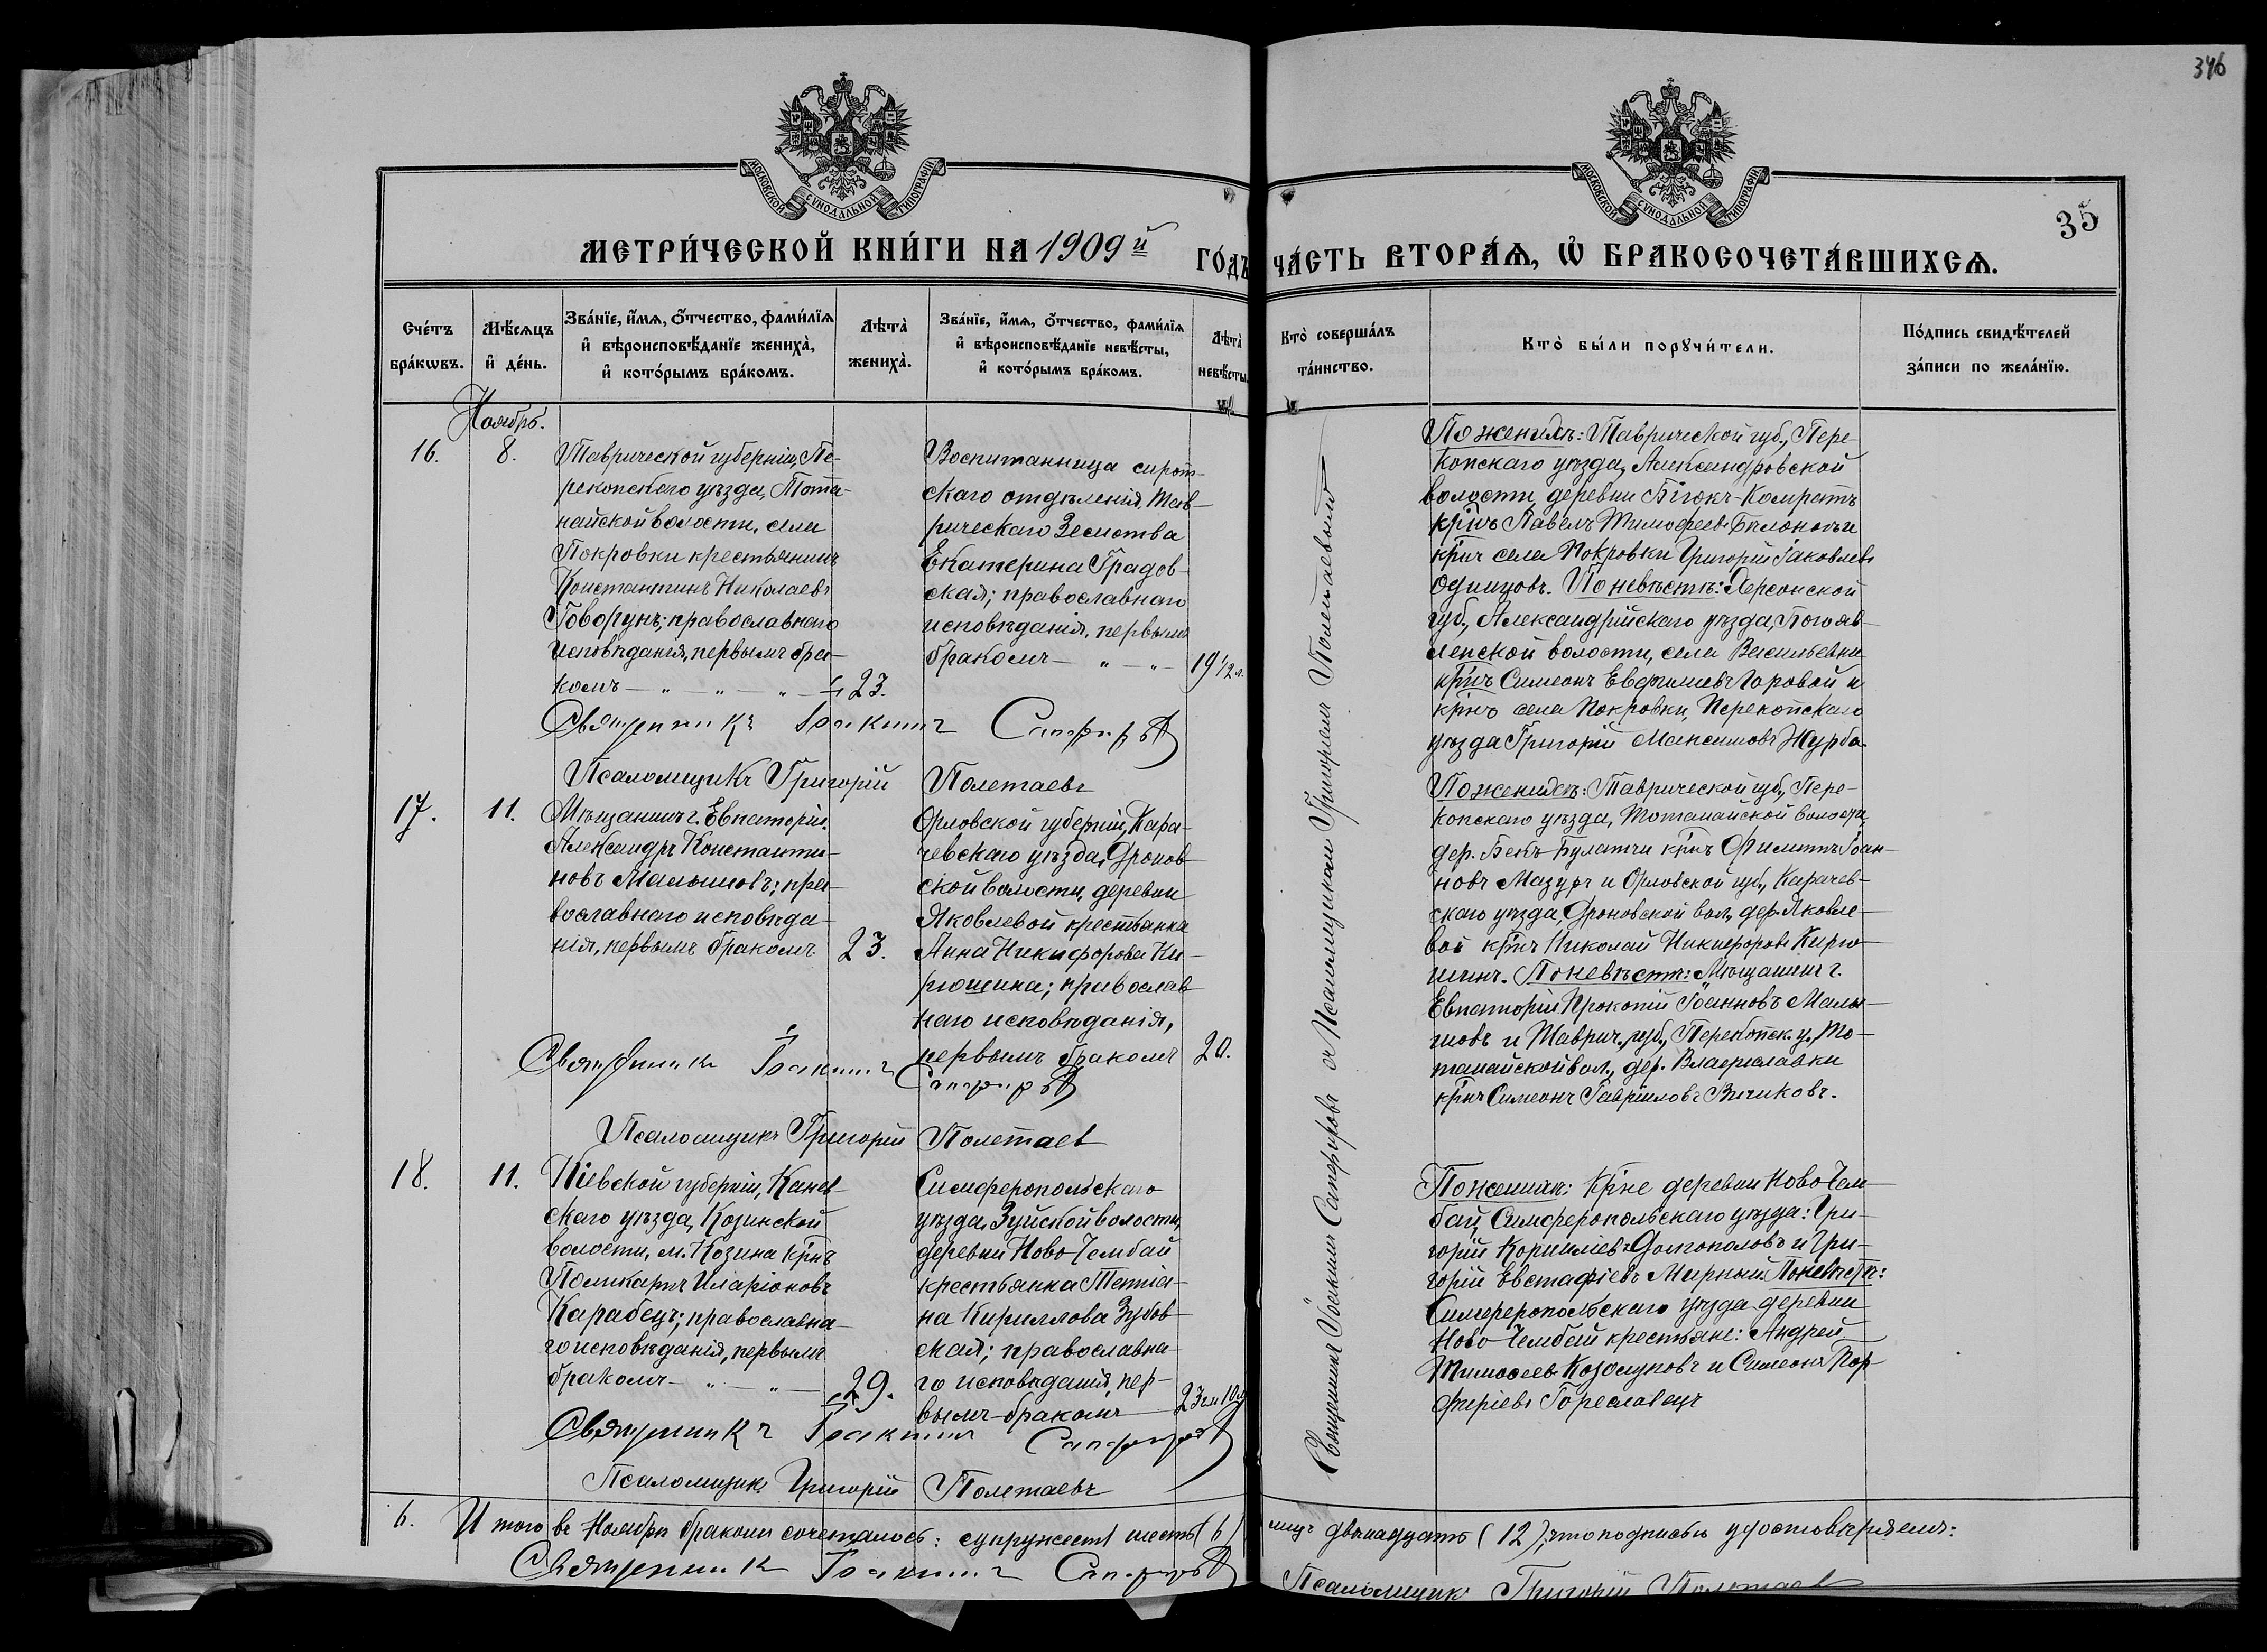 346
МОСКОВСКОЙ СУНОДАЛЬНОЙ ТИПОГРАФІИ
МОСКОВСКОЙ СУНОДАЛЬНОЙ ТИПОГРАФІИ
35
МЕТРИ́ЧЕСКОЙ КНИ́ГИ НА 1909й ГО́ДЪ
ЧА́СТЬ ВТОРА́Ѧ, Ѽ БРАКОСОЧЕТА́ВШИХСѦ.
Сче́тъ бра́кѡвъ.
Мѣ́сяцъ и҆ де́нь.
Зва́нїе, и҆́мѧ, ѻ҆́тчество, фами́лїѧ
и҆ вѣроисповѣ́данїе жениха̀,
и҆ кото́рымъ бра́комъ.
Лѣта̀ жениха̀.
Зва́нїе, и҆́мѧ, ѻ҆́тчество, фами́лїѧ
и҆ вѣроисповѣ́данїе невѣ́сты,
и҆ кото́рымъ бра́комъ.
Лѣта̀ невѣ́сты.
Кто̀ соверша́лъ та́инство.
Кто̀ бы́ли порꙋчи́тели.
По́дпись свидѣ́телей за́писи по жела́нїю.
Ноябрь.
16.
8.
Таврической губерніи, Пе-
рекопскаго уѣзда, Тота-
найской волости, села
Покровки крестьянинъ
Константинъ Николаевъ
Говорунъ; православнаго
исповѣданія, первымъ бра-
комъ — „ — „ — „ —
23.
Воспитанница сирот-
скаго отдѣленія Тав-
рическаго Земства
Екатерина Градов-
ская; православнаго
исповѣданія, первымъ
бракомъ — „ — „ —
19 1/2 л.
Священникъ Іоакимъ Сапфировъ
Псаломщикъ Григорій Полетаевъ
По женихѣ: Таврической губ., Пере-
копскаго уѣзда, Александровской
волости, деревни Біюкъ-Комратъ
кр̃нъ Павелъ Тимоѳеевъ и
кр̃нъ села Покровки Григорій Іаковлевъ
Одинцовъ. По невѣстѣ: Херсонской
губ., Александрійскаго уѣзда,
волости, села Васильевки
кр̃нъ Симеонъ Евфимиевъ и
кр̃нъ села Покровки, Перекопскаго
уѣзда Григорій Максимовъ Журба.
17.
11.
Мѣщанинъ г. Евпаторіи
Александръ Константи-
новъ Малышовъ; пра-
вославнаго исповѣда-
нія, первымъ бракомъ
23.
Орловской губерніи, Кара-
чевскаго уѣзда, Дронов-
ской волости, деревни
Яковлевой крестьянка
Анна Никифорова Ки-
рюшина; православ-
наго исповѣданія,
первымъ бракомъ
20.
Священникъ Іоакимъ Сапфировъ
Псаломщикъ Григорій Полетаевъ
По женихѣ: Таврической губ., Пере-
копскаго уѣзда, Тотанайской волости,
дер. Бекъ-Булатчи кр̃нъ Филиппъ Іоан-
новъ Мазуръ и Орловской губ., Карачев-
скаго уѣзда, Дроновской вол., дер. Яковле-
вой кр̃нъ Николай Никифоровъ Кирю-
шинъ. По невѣстѣ: Мѣщанинъ г.
Евпаторіи Прокопій Іоанновъ Малы-
шовъ и Таврич. губ., Перекопск. у., То-
танайской вол., дер. Владиславки
кр̃нъ Симеонъ Гавріиловъ
18.
11.
Кіевской губерніи, Канев-
скаго уѣзда, Козинской
волости, м. Козина кр̃нъ
Поликарпъ Иларіоновъ
Карабецъ; православна-
го исповѣданія, первымъ
бракомъ — „ — „ —
29.
Симферопольскаго
уѣзда, Зуйской волости,
деревни Ново Чембай
крестьянка Татіа-
на Кириллова Зубов-
ская; православна-
го исповѣданія, пер-
вымъ бракомъ
23 л. 10 м.
Священникъ Іоакимъ Сапфировъ
Псаломщикъ Григорій Полетаевъ
По женихѣ: Кр̃не деревни Ново Чем-
бай, Симферопольскаго уѣзда: Гри-
горій Корниліевъ и Гри-
горій Евстафіевъ Мирный. По невѣстѣ:
Симферопольскаго уѣзда деревни
Ново Чембай крестьяне: Андрей
Тимоѳеевъ и Симеонъ Пор-
фиріевъ Гореславецъ
Священникъ Іоакимъ Сапфировъ съ Псаломщикомъ Григоріемъ Полетаевымъ
6.
Итого въ Ноябрѣ бракомъ сочеталось: супружествъ шесть (6)
лицъ двѣнадцать (12), что подписью удостовѣряемъ:
Священникъ Іоакимъ Сапфировъ
Псаломщикъ Григорій Полетаевъ